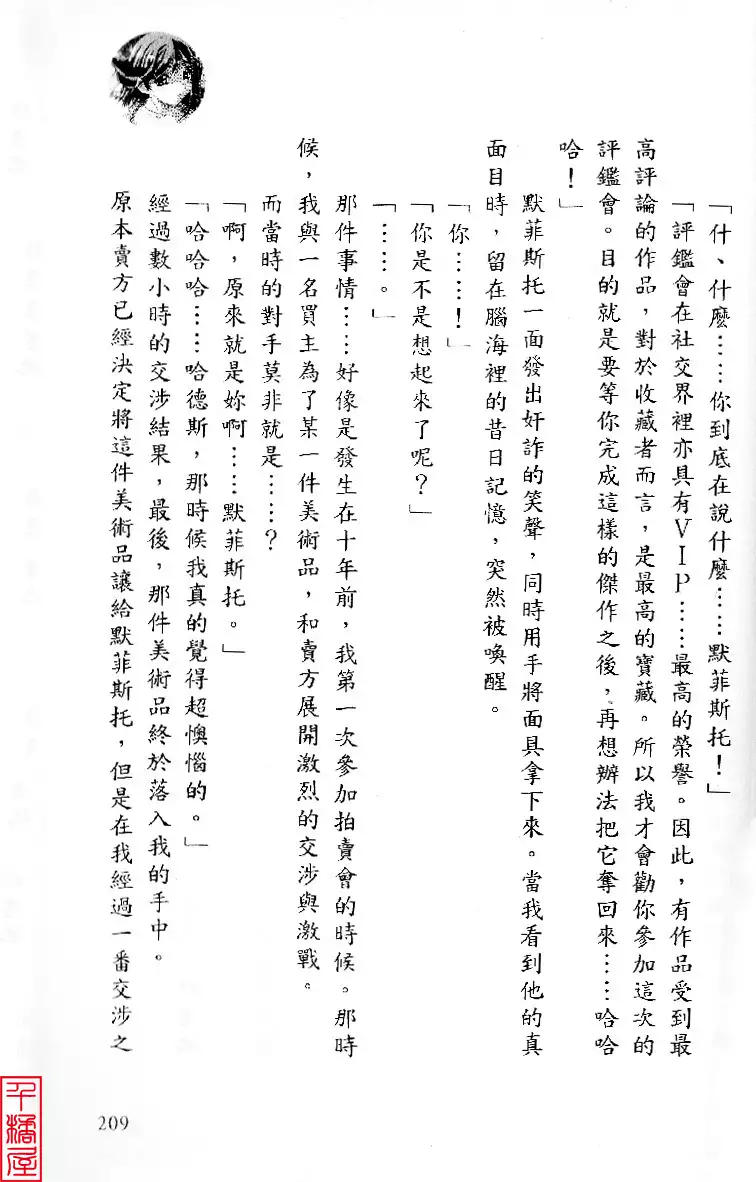 「什、什麼……你到底在說什麼……默菲斯托！」
「評鑑會在社交界裡亦具有VIP……最高的榮譽。因此，有作品受到最
高評論的作品，對於收藏者而言，是最高的寶藏。所以我才會勸你參加這次的
評鑑會。目的就是要等你完成這樣的傑作之後，再想辦法把它奪回來……哈哈
哈！」
默菲斯托一面發出奸詐的笑聲，同時用手將面具拿下來。當我看到他的真
面目時，留在腦海裡的昔日記憶，突然被喚醒。
「你……！」
「你是不是想起來了呢？」
「……。」
那件事情……好像是發生在十年前，我第一次參加拍賣會的時候。那時
候，我與一名買主為了某一件美術品，和賣方展開激烈的交涉與激戰。
而當時的對手莫非就是……？
「啊，原來就是妳啊……默菲斯托。」
「哈哈哈……哈德斯，那時候我真的覺得超懊惱的。」
經過數小時的交涉結果，最後，那件美術品終於落入我的手中。
原本賣方已經決定將這件美術品讓給默菲斯托，但是在我經過一番交涉之
209
千橘屋